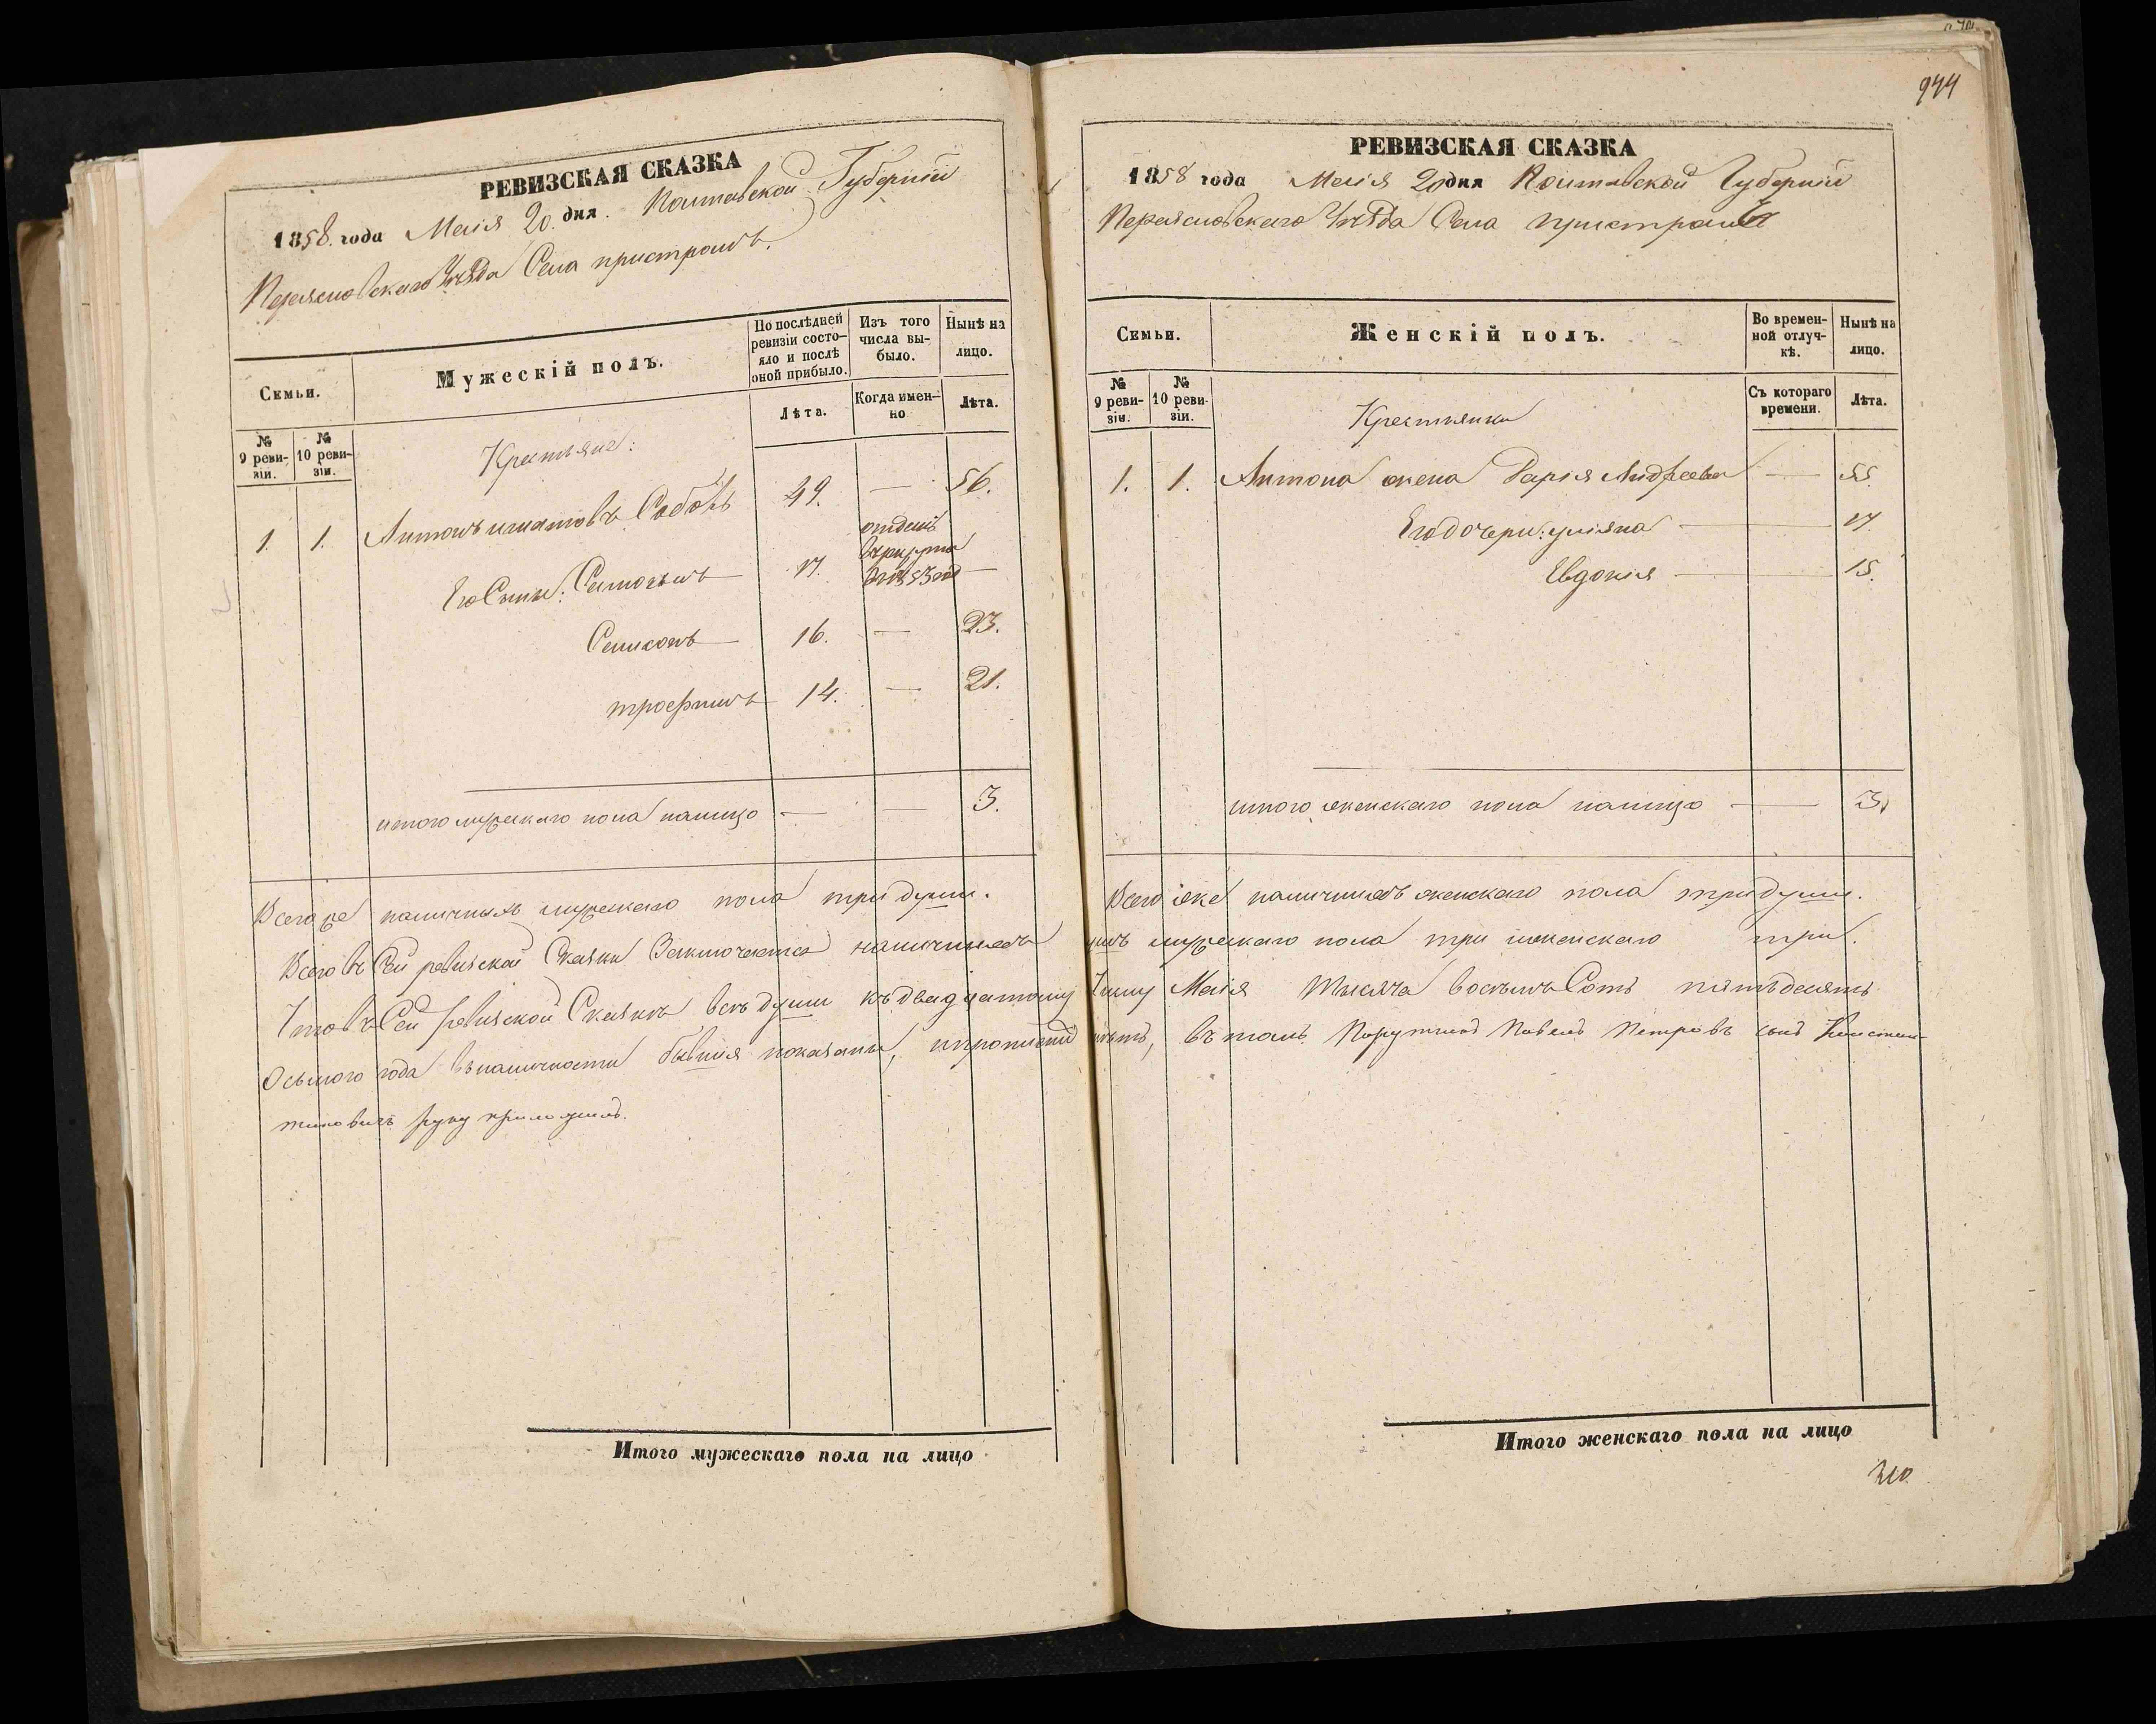 944
РЕВИЗСКАЯ СКАЗКА
1858. года Маія 20. дня. Полтавской Губерніи
Переясловскаго Уѣзда Села пристромъ.
Семьи.
Мужескій полъ.
По послѣдней ревизіи состояло и послѣ оной прибыло.
Изъ того числа выбыло.
Нынѣ на лицо.
№ 9 ревизіи.
№ 10 ревизіи.
Лѣта.
Когда именно
Лѣта.
Крестьяне:
1. 1. Антонъ игнатовъ 49. — 56.
Его Сыны: 17. отданъ —
16. — 23.
трофимъ 14. — 21.
итого мужескаго пола налицо — — 3.
Всего же наличныхъ мужескаго пола три души.
Всего въ Сей ревизской Сказки Заключается наличныхъ
Что въ Сей ревизской Сказкѣ всѣ души къ двадцатому
Осьмого года въ наличности бывшія показаны, и прописной
тиновичъ руку приложилъ.
Итого мужескаго пола на лицо
РЕВИЗСКАЯ СКАЗКА
1858 года Маія 20 дня Полтавской Губерніи
Переясловскаго Уѣзда Села
Семьи.
Женскій полъ.
Во временной отлучкѣ.
Нынѣ на лицо.
№ 9 ревизіи.
№ 10 ревизіи.
Съ котораго времени.
Лѣта.
Крестьянки
1. 1. Антона жена Дарія Андреева — 55.
Его дочери: уліяна — 17.
Евдокія — 15.
итого женскаго пола налицо — 3.
Всего же наличныхъ женскаго пола три души.
мужескаго пола три и женскаго три.
Маія Тысяча восемь Сотъ пятьдесятъ
нѣтъ, въ томъ Поручикъ Павелъ Петровъ сынъ Констан-
Итого женскаго пола на лицо
310.